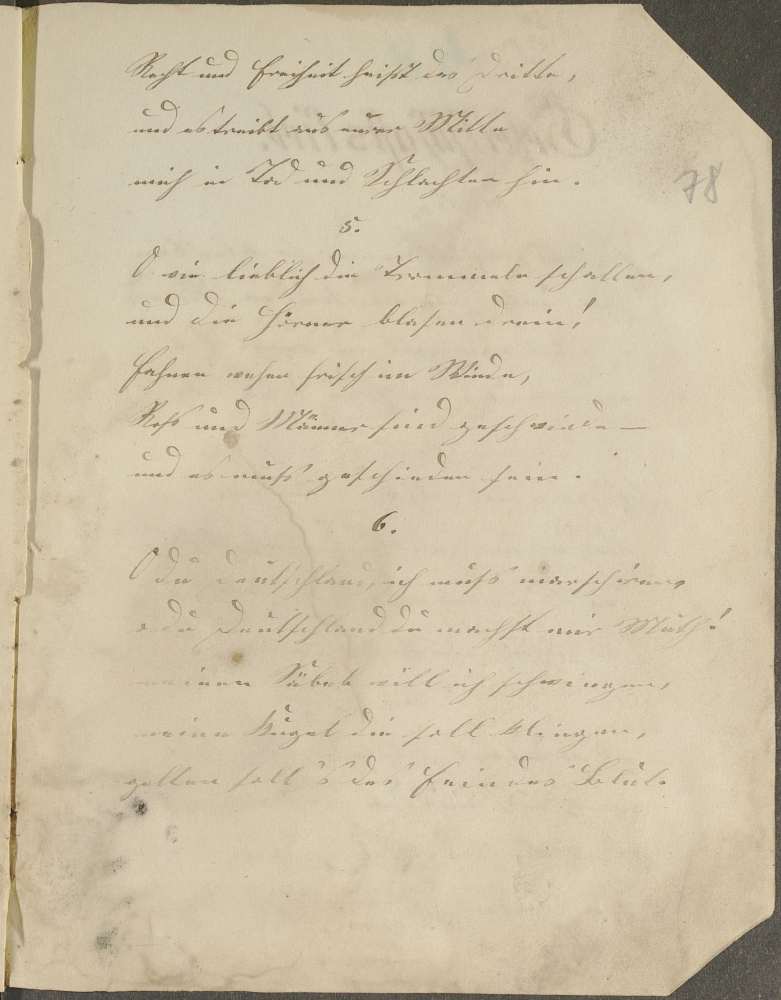 Recht und Freiheit heißt das Dritte,
und es treibt aus eurer Mitte
mich in Tod und Schlachten hin.
78
5.
O wie lieblich die Trommeln schallen,
und die Hörner blasen drein!
Fahnen wehen frisch im Winde,
Roß und Männer sind geschwinde —
und es muß geschieden sein.
6.
O du Deutschland, ich muß marschiren,
o du Deutschland du machst mir Muth!
meinen Säbel will ich schwingen,
meine Kugel die soll klingen,
gelten soll's des Feindes Blut.